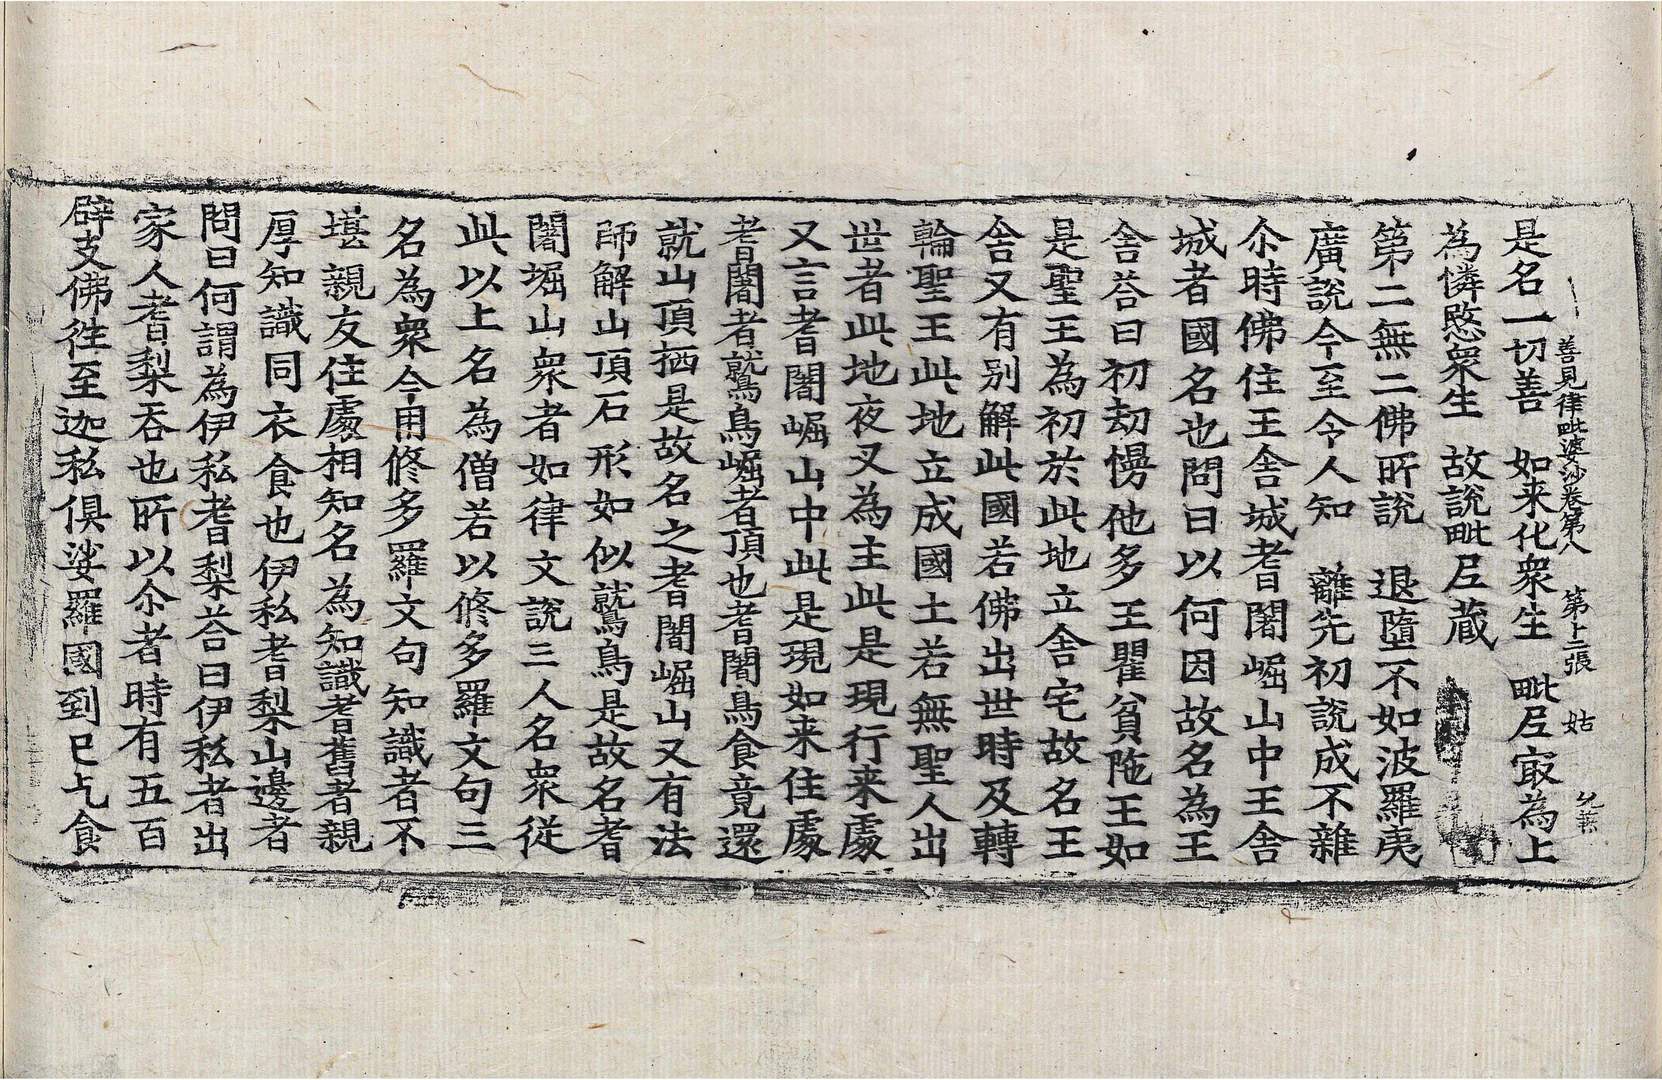 善見律毗婆沙卷第八　第十二張　姑
是名一切善　如来化衆生　毗尼㝡為上
為憐愍衆生　故說毗尼蔵
第二無二佛所說　退墮不如波羅夷
廣說今至令人知　離先初說成不雜
尒時佛住王舍城耆闍崛山中王舍
城者國名也問曰以何因故名為王
舍荅曰初劫慢他多王瞿貧陁王如
是聖王為初於此地立舍宅故名王
舍又有別解此國若佛出世時及轉
輪聖王此地立成國土若無聖人出
世者此地夜叉為主此是現行来處
又言耆闍崛山中此是現如来住處
耆闍者鷲鳥崛者頂也耆闍鳥食竟還
就山頂栖是故名之耆闍崛山又有法
師解山頂石形如似鷲鳥是故名耆
闍堀山衆者如律文說三人名衆従
此以上名為僧若以修多羅文句三
名為衆今用修多羅文句知識者不
堪親友住處相知名為知識者舊者親
厚知識同衣食也伊私耆梨山邊者
問曰何謂為伊私耆梨荅曰伊私者出
家人耆梨吞也所以尒者時有五百
辟支佛徃至迦私俱娑羅國到已乞食